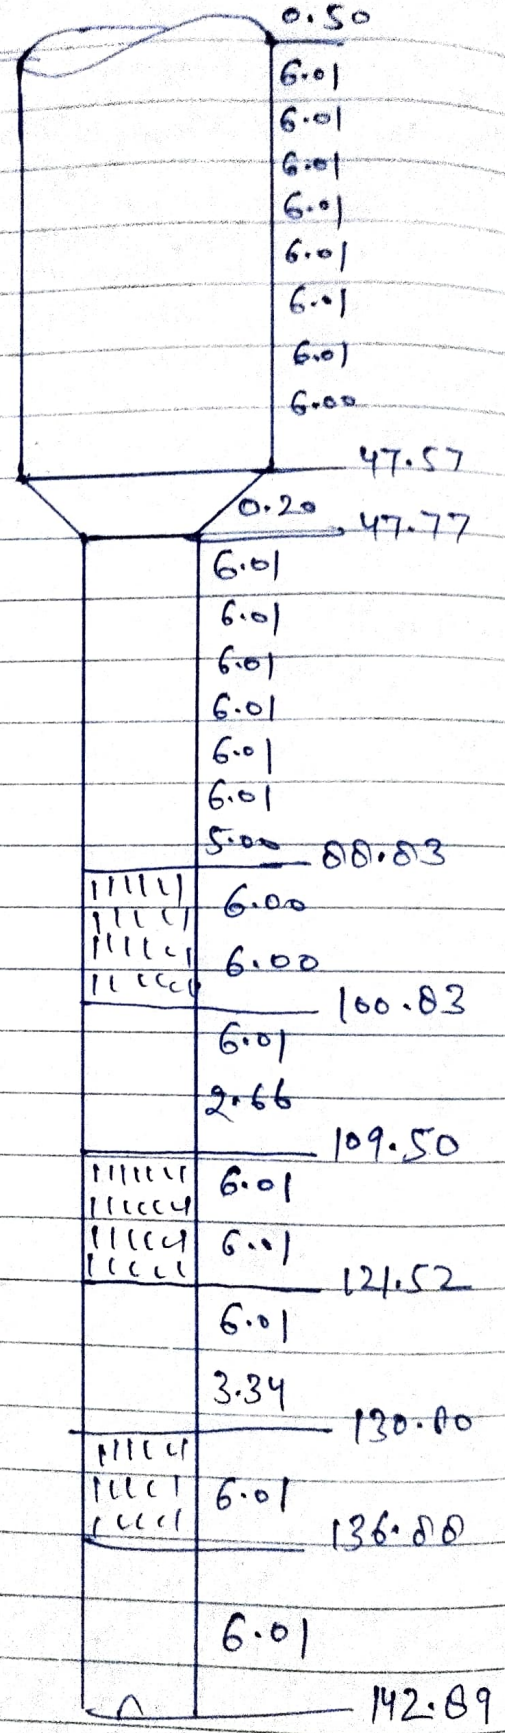 0.50
6.01
6.01
6.01
6.01
6.01
6.01
6.01
6.00
47.57
0.20
47.77
6.01
6.01
6.01
6.01
6.01
6.01
5.00
88.83
6.00
6.00
100.83
6.01
2.66
109.50
6.01
6.01
121.52
6.01
3.34
130.80
6.01
136.88
6.01
142.89